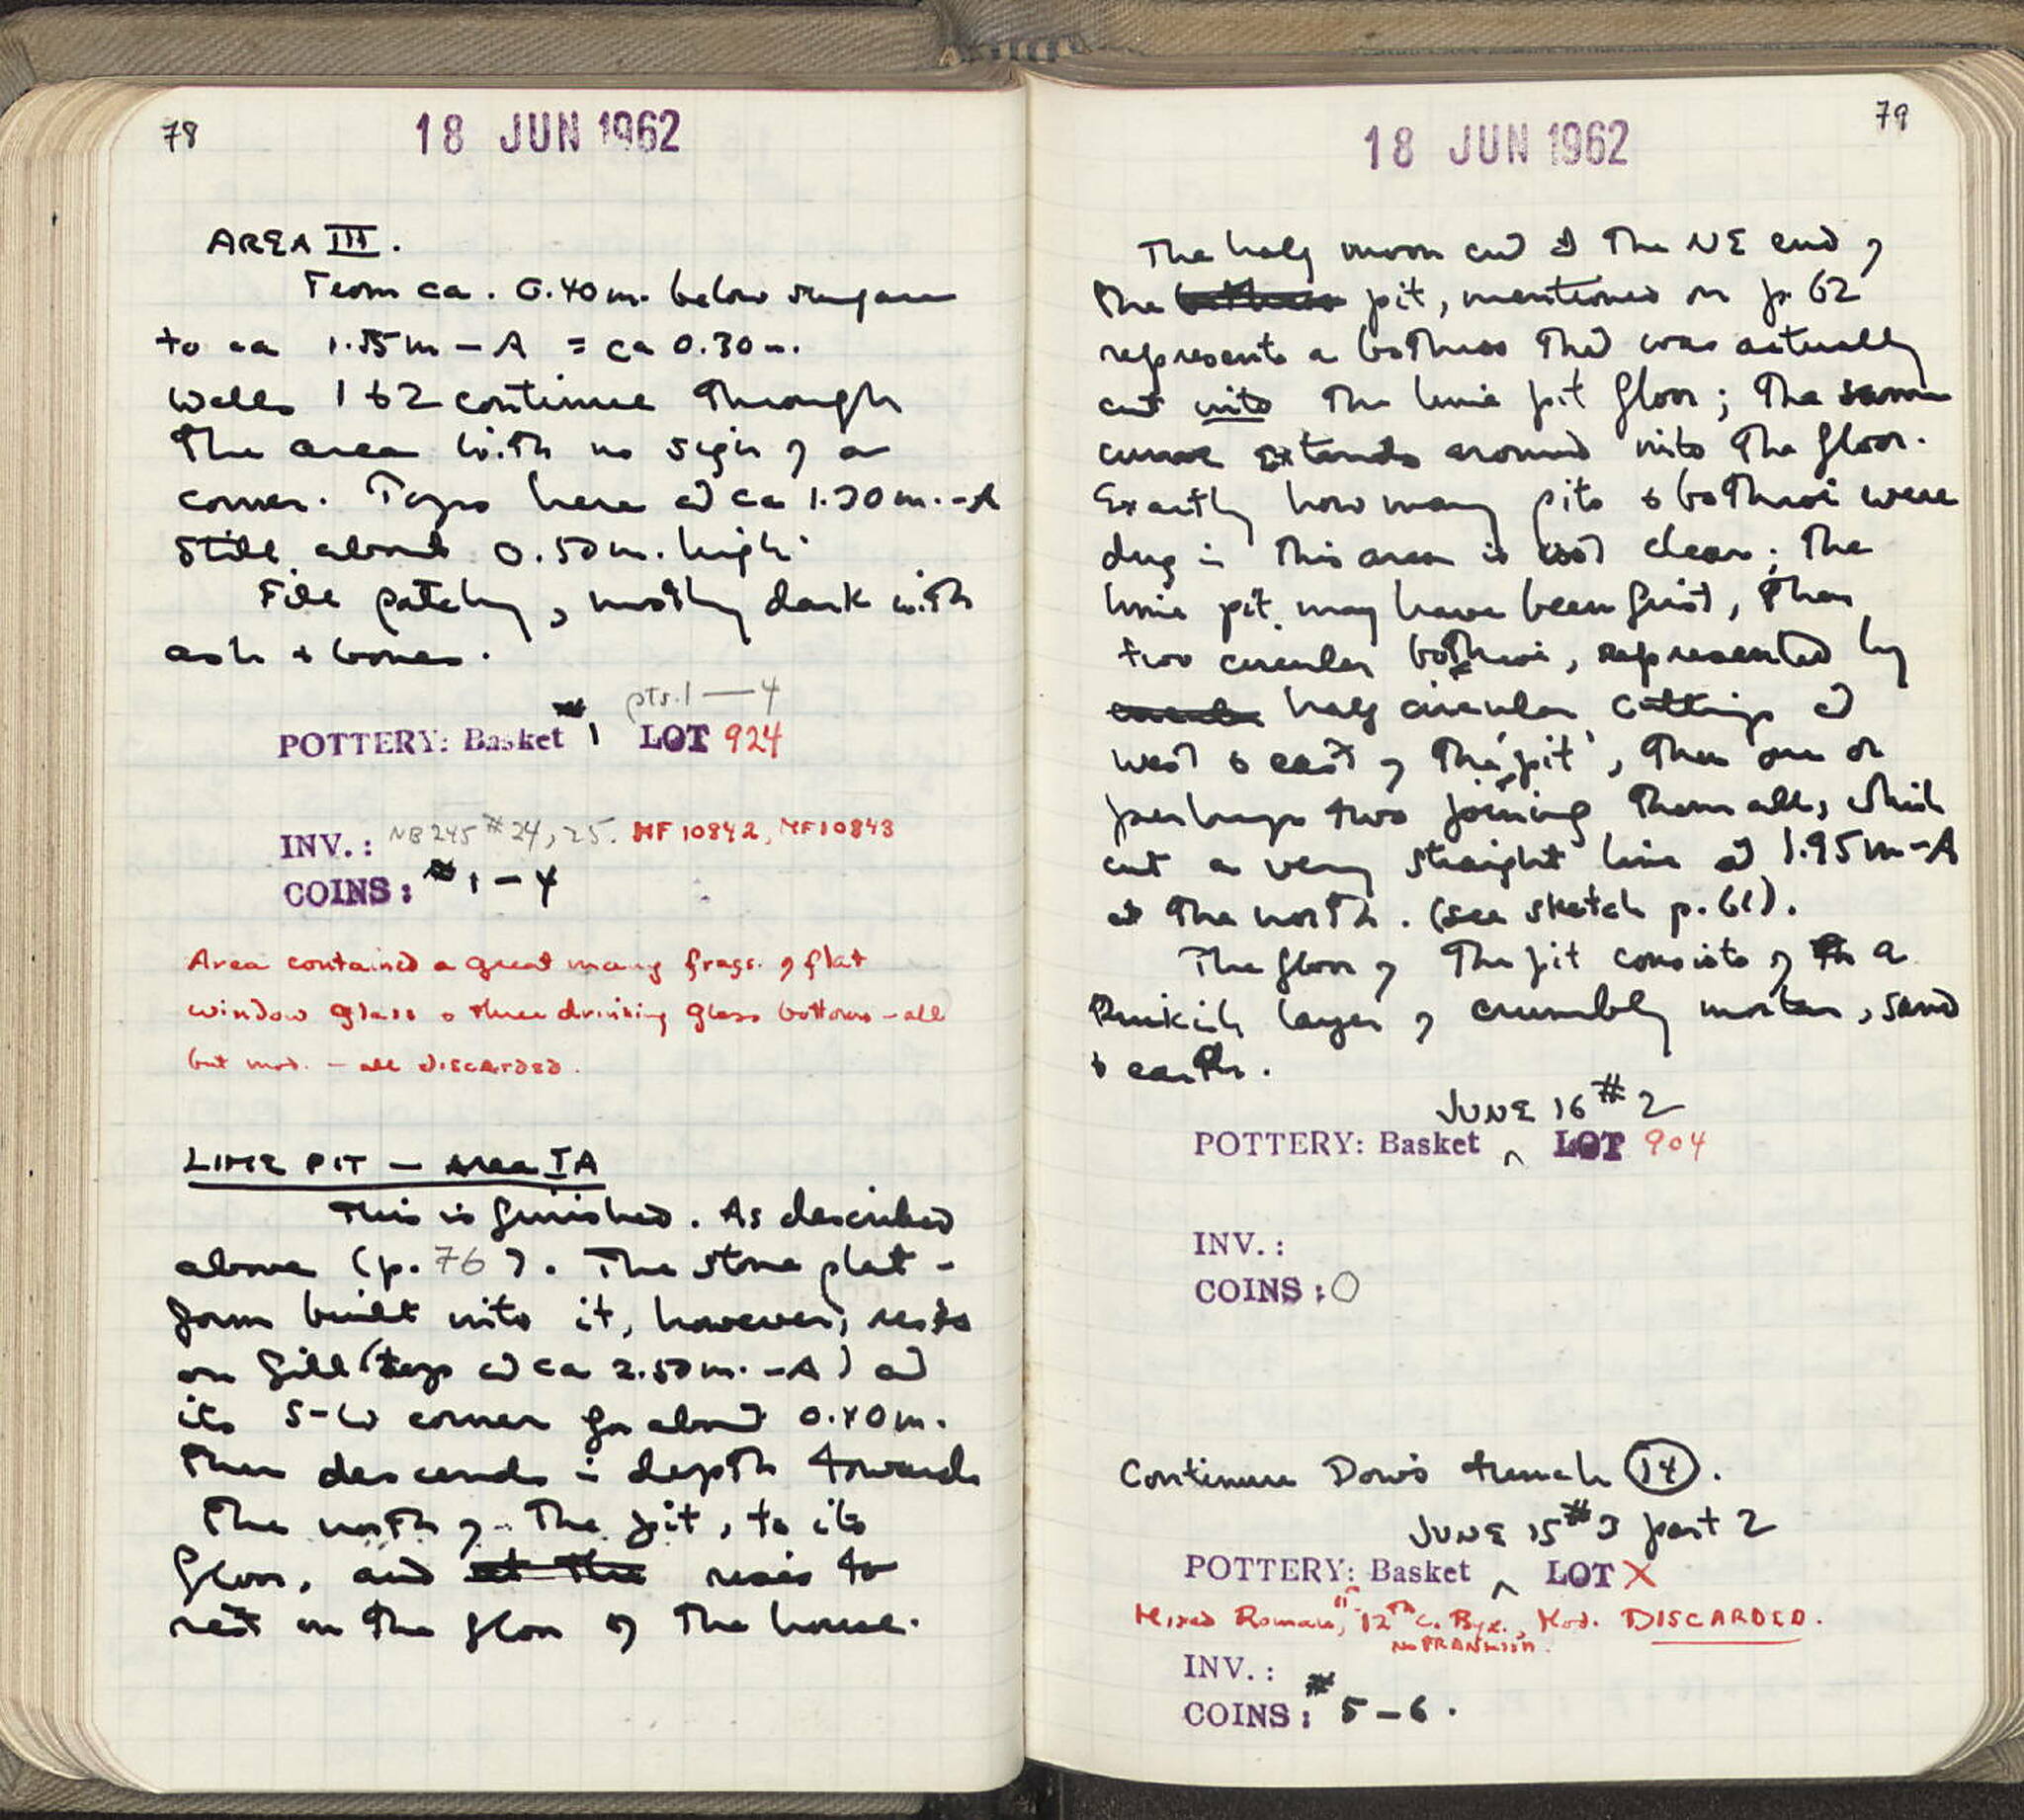 78
18 JUN 1962
AREA III.
From ca. 0.40m. below surface
to ca 1.55m - A = ca 0.30m.
Walls 1 & 2 continue through
the area with no sign of a
corner. Tops here at ca 1.30m.-A
still about 0.50m. high.
Fill patchy, mostly dark with
ash & bones.
pts. 1 — 4
POTTERY: Basket #1 LOT 924
INV.: NB 245 #24, 25. MF 10842, MF 10843
COINS: #1-4
Area contained a great many frags. of flat
window glass & three drinking glass bottoms - all
but mod. - all discarded.
LIME PIT - Area IA
This is finished. As described
above (p. 76). The stone plat-
form built into it, however, rests
on fill (top at ca 2.50m.-A) at
its S-W corner for about 0.40m.
then descends in depth towards
the north of the pit, to its
floor, and at the rises to
rest on the floor of the house.
79
18 JUN 1962
The half moon cut at the NE end of
the bothros pit, mentioned on p. 62
represents a bothros that was actually
cut into the lime pit floor; the same
curve extends around into the floor.
Exactly how many pits & bothroi were
dug in this area is not clear; the
lime pit may have been first, then
two circular bothroi, represented by
half circular cuttings at
west & east of the 'pit', then one or
perhaps two joining them all, which
cut a very straight line at 1.95m-A
at the north. (see sketch p. 61).
The floor of the pit consists of a
Pinkish layer of crumbly mortar, sand
& earth.
JUNE 16 #2
POTTERY: Basket ^ LOT 904
INV.:
COINS: O
Continue Dow's trench 14.
JUNE 15 #3 part 2
POTTERY: Basket ^ LOT X
Mixed Roman, 11th-12th c. Byz., Mod. DISCARDED.
NO FRANKISH.
INV.:
COINS: #5-6.